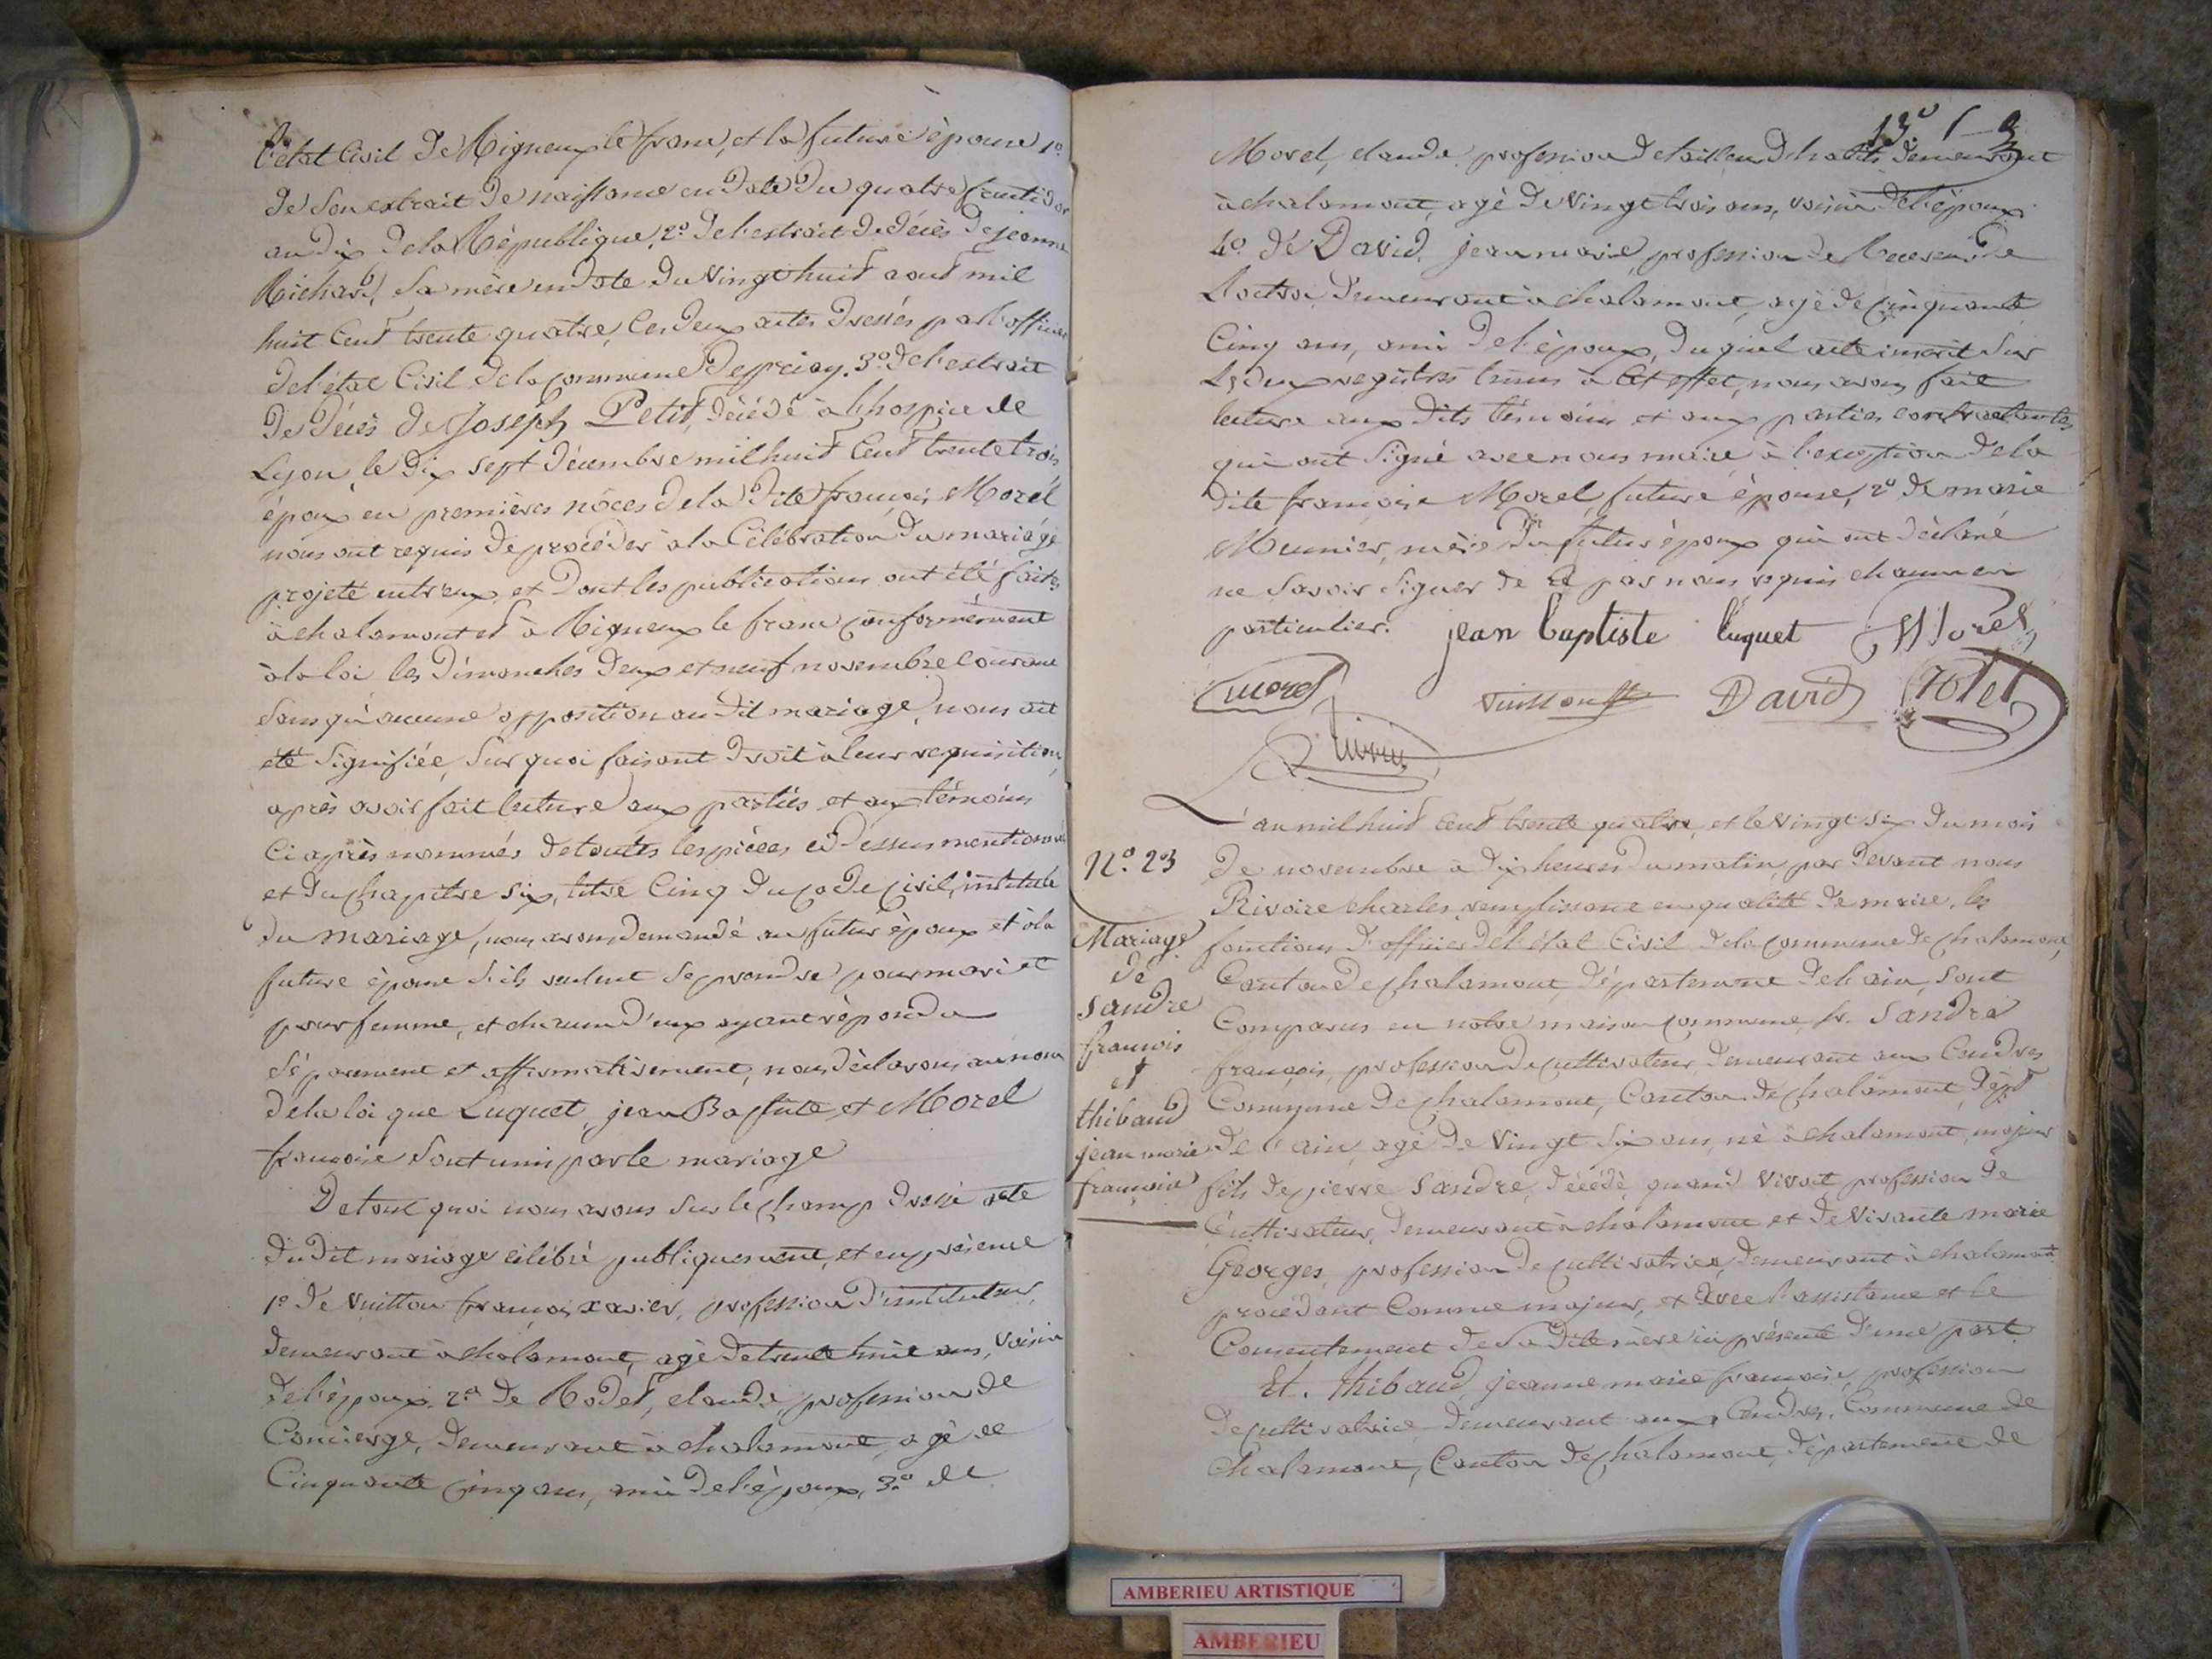 l'état Civil de Rigneux le franc, et la future épouse 1º
de son extrait de naissance en date du quatre fructidor
an dix de la République, 2º de l'extrait de décès de jeanne
Richard, sa mère en date du vingt huit aout mil
huit cent trente quatre, les deux actes dressés par l'officier
de l'état Civil de la commune de priay. 3º de l'extrait
de décès de Joseph Petit, décédé à l'hospice de
Lyon, le dix sept décembre mil huit Cent trente trois
époux en premières nôces de la dite françoise Morel
nous ont requis de procéder à la Célébration du mariage
projeté entr'eux, et dont les publications ont été faites
à chalamont et à Rigneux le franc conformément
à la loi les dimanches deux et neuf novembre courant
sans qu'aucune opposition au dit mariage, nous ait
été signifiée, sur quoi faisant droit à leur requisition,
après avoir fait lecture aux parties et aux témoins
ci après nommés de toutes les pièces ci-dessus mentionnées
et du chapitre six, titre Cinq du code civil, intitulé
du mariage, nous avons demandé au futur époux et à la
future épouse s'ils veulent se prendre pour mari et
pour femme, et chacun d'eux ayant répondu
séparément et affirmativement, nous déclarons au nom
de la loi que Luquet, jean Baptiste et Morel
françoise sont unis par le mariage
De tout quoi nous avons sur le champ dressé acte
du dit mariage célébré publiquement, et en présence
1º de Vuitton françois xavier, profession d'instituteur,
demeurant à chalamont, agé de trente huit ans, voisin
de l'époux. 2º de Rodet, claude, profession de
Concierge, demeurant à chalamont, agé de
Cinquante cinq ans, ami de l'époux, 3º de
13e
Morel, claude, profession de tailleur d'habits demeurant
à chalamont, agé de vingt trois ans, voisin de l'époux
4º de David, jean marie, profession de Receveur de
L'octroi demeurant à chalamont, agé de cinquante
Cinq ans, ami de l'époux, du quel acte inscrit sur
Les deux registres tenus à cet effet, nous avons fait
lecture aux dits témoins et aux parties contractantes
qui ont signé avec nous maire à l'exception de la
dite françoise Morel, future épouse, 2º de marie
Meunier, mère du futur époux qui ont déclaré
ne savoir signer de ce par nous requis chacun en
particulier. jean baptiste luquet Morel
morel David rodet
L'an mil huit cent trente quatre, et le vingt six du mois
Nº. 23 de novembre à dix heures du matin, par devant nous
Rivoire charles remplissant en qualité de maire, les
Mariage fonctions d'officier de l'état Civil de la commune de chalamont,
de Canton de chalamont, département de l'ain, sont
Sandre Comparus en notre maison commune, sr. Sandre
françois françois, profession de cultivateur, demeurant aux Cendres
et Commune de chalamont, Canton de chalamont, dépt
thibaud de l'ain, agé de vingt six ans, né à chalamont, majeur
jean marie fils de pierre Sandre, décédé, quand vivait profession de
françoise Cultivateur, demeurant à chalamont et de vivante marie
Georges, profession de cultivatrice, demeurant à chalamont
procédant Comme majeur, et avec l'assistance et le
Consentement de sa dite mère ici présente d'une part
Et. thibaud, jeanne marie françoise, profession
de cultivatrice demeurant aux Cendres, Commune de
Chalamont, Canton de chalamont, département de
AMBERIEU ARTISTIQUE
AMBERIEU